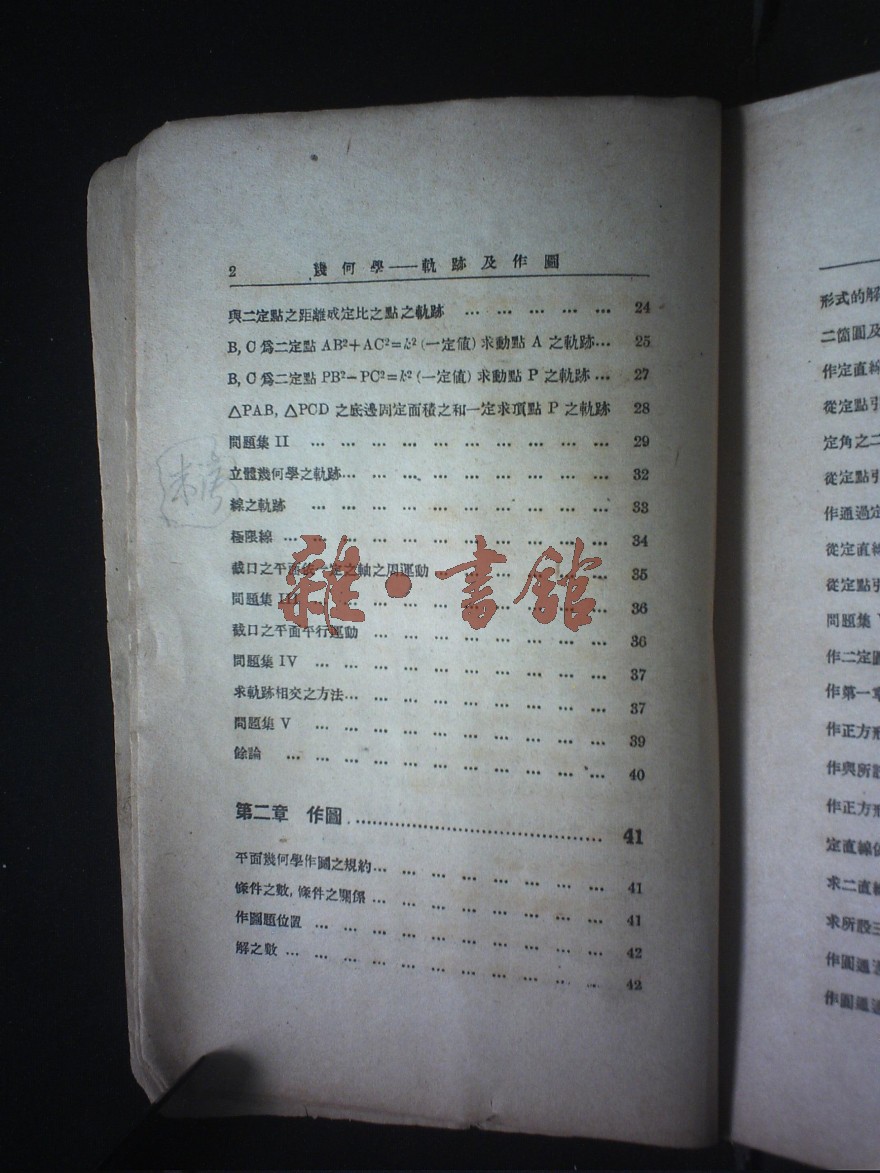 2 幾何學——軌跡及作圖
與二定點之距離成定比之點之軌跡 … … … … … 24
B, C 爲二定點 AB²+AC²=k² (一定値) 求動點 A 之軌跡… 25
B, C 爲二定點 PB²−PC²=k² (一定値) 求動點 P 之軌跡… 27
△PAB, △PCD 之底邊固定面積之和一定求頂點 P 之軌跡 28
問題集 II … … … … … … … … … … 29
立體幾何學之軌跡… … … … … … … … … 32
線之軌跡 … … … … … … … … … … 33
極限線 … … … … … … … … … … … 34
截口之平面依一定之軸之周運動 … … … … … … 35
問題集 III … … … … … … … … … … 36
截口之平面平行運動 … … … … … … … … 36
問題集 IV … … … … … … … … … … 37
求軌跡相交之方法… … … … … … … … … 37
問題集 V … … … … … … … … … … 39
餘論 … … … … … … … … … … … 40
第二章 作圖 ……………………………… 41
平面幾何學作圖之規約… … … … … … … … 41
條件之數, 條件之關係 … … … … … … … … 41
作圖題位置 … … … … … … … … … … 42
解之數 … … … … … … … … … … … 42
雜·書館
形式的解
二箇圓及
作定直線
從定點引
定角之二
從定點引
作通過定
從定直線
從定點引
問題集
作二定圓
作第一章
作正方形
作與所設
作正方形
定直線
求二直線
求所設三
作圓通過
作圓通過